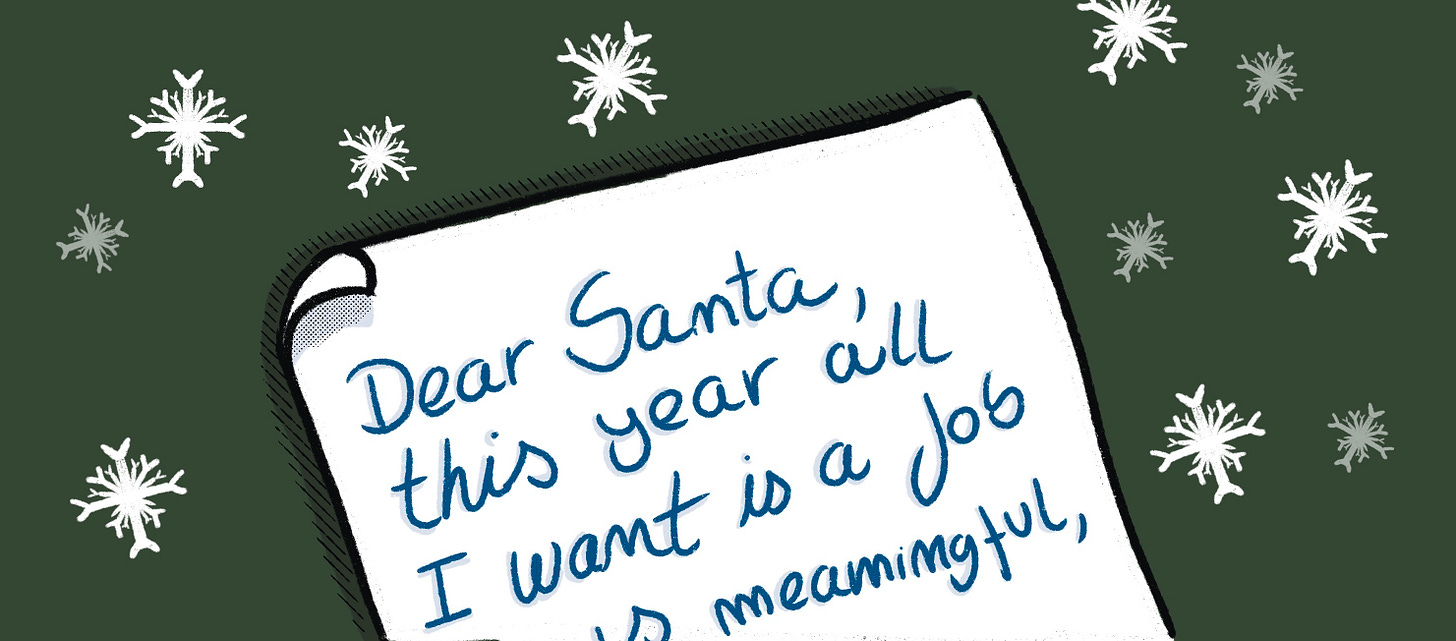 Dear Santa,
this year all
I want is a job
is meaningful,